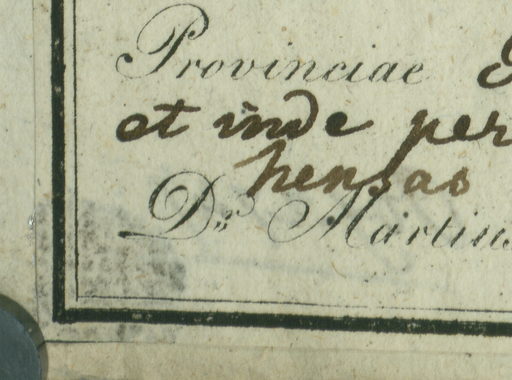 Provinciae
et inde per
pensas
Dr. Martinus